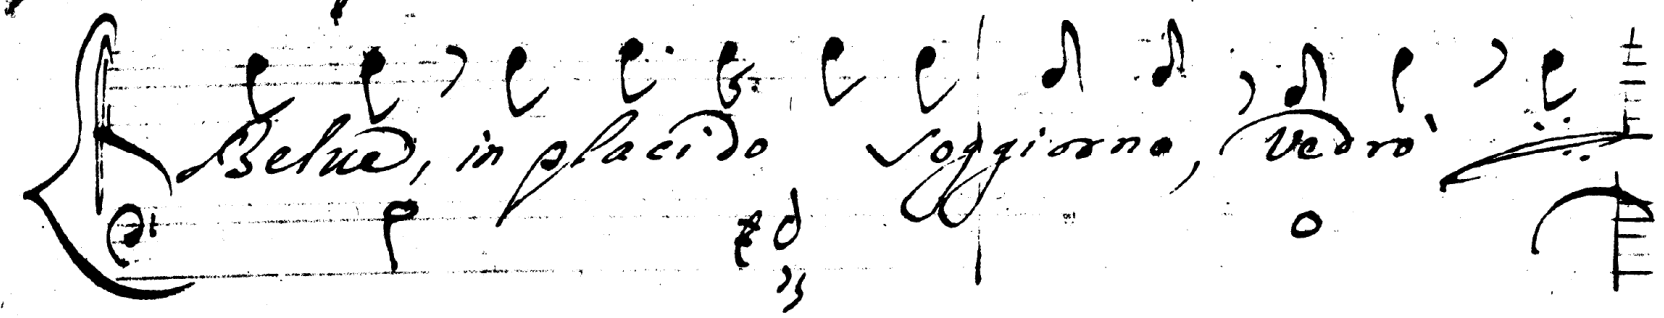 Belue, in placido soggiorno, vedrò